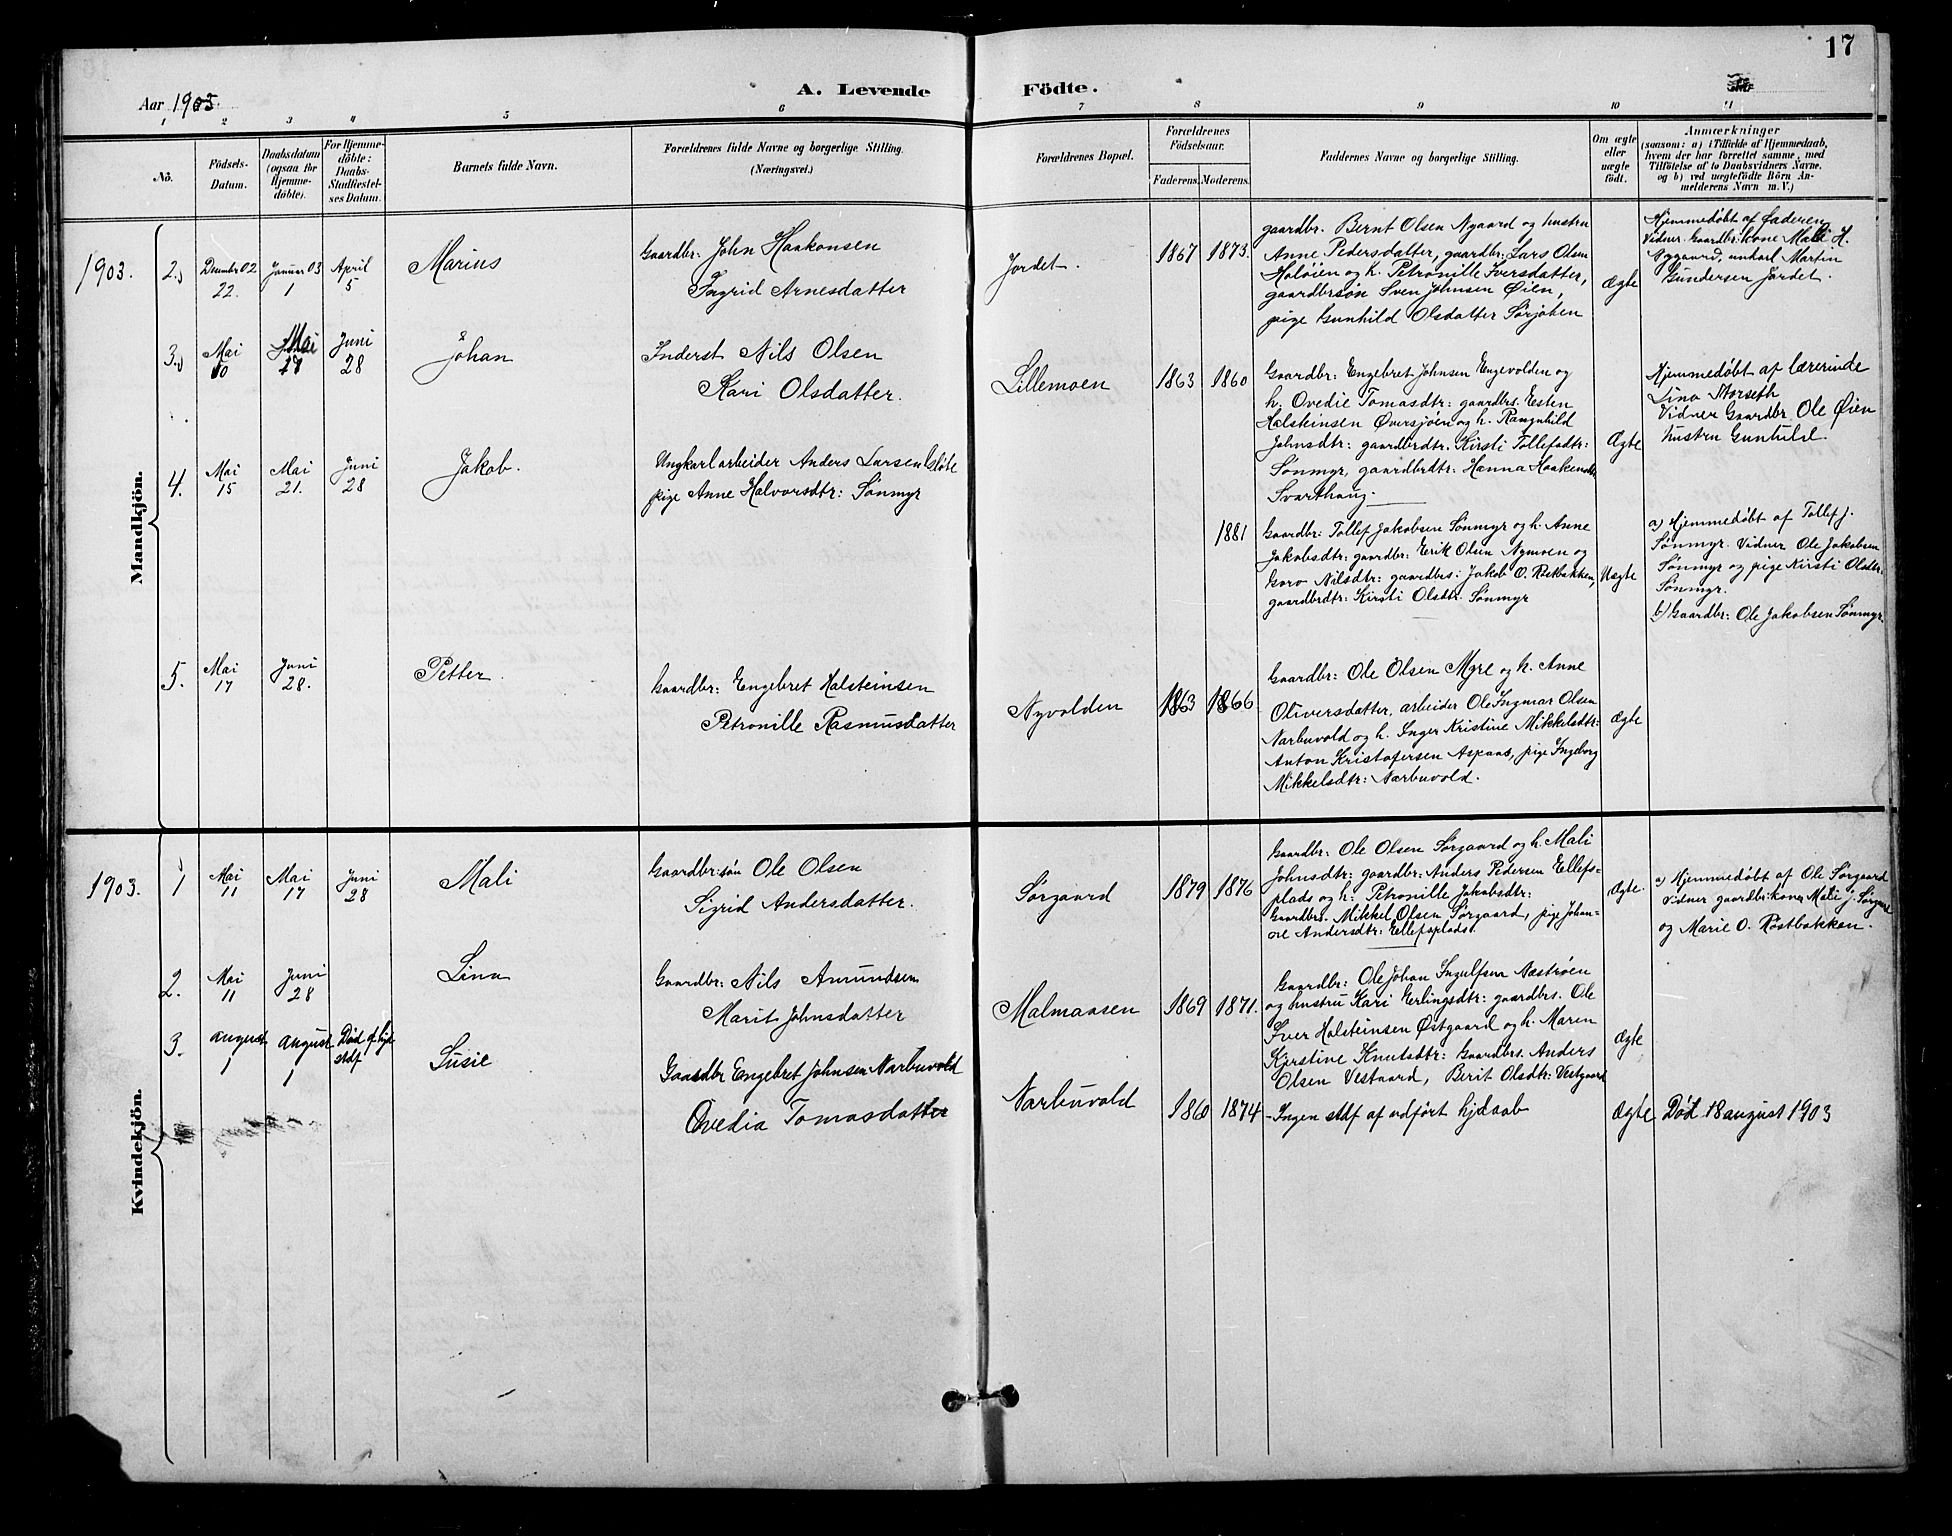 17
Aar 1903.
A. Levende Födte.
1 2 3 4 5 6 7 8 9 10 11
Nô.
Födsels-
Datum.
Daabsdatum
(ogsaa for
Hjemme-
döbte).
For Hjemme-
döbte:
Daabs-
Stadfæstel-
ses Datum.
Barnets fulde Navn.
Forældrenes fulde Navne og borgerlige Stilling.
(Næringsvei.)
Forældrenes Bopæl.
Forældrenes
Födselsaar.
Faderens. Moderens.
Faddernes Navne og borgerlige Stilling.
Om ægte
eller
uægte
født.
Anmærkninger
(saasom: a) i Tilfælde af Hjemmedaab,
hvem der har forrettet samme, med
Tilföielse af to Daabsvidners Navne,
og b) ved uægtefödte Börn An-
melderens Navn m. V.)
Mandkjön.
1903.
2.
December 02
22.
Januar 03
1
April
5
Marius
Gaardbr: John Haakonsen
Ingrid Arnesdatter
Jordet.
1867 1873.
gaardbr. Bernt Olsen Nygaard og hustru
Anne Pedersdatter, gaardbr: Lars Olsen
Holøien og h. Petronille Iversdatter,
gaardbrsøn Sven Johnsen Øien,
pige Gunhild Olsdatter Sørjoten
Ægte
Hjemmedøbt af Faderen
Vidner: Gaardbr: kone Mali H.
Nygaard, unkarl Martin
Gundersen Jordet.
3.
Mai
10
Mai
17
Juni
28
Johan
Inderst Nils Olsen
Kari Olsdatter.
Lillemoen
1863 1860
Gaardbr: Engebret Johnsen Engevolden og
h. Ovedie Tomasdtr: gaardbrs. Esten
Halsteinsen Øversjøen og h. Rangnhild
Johnsdtr: gaardbrdtr. Kirsti Tollefsdtr:
Sønmyr, gaardbrdtr: Hanna Haakensdtr
Svarthaug.
Ægte
Hjemmedøbt af lærerinde
Lina Storseth
Vidner Gaardbr Ole Øien
hustru Gunhild.
4.
Mai
15
Mai
21.
Juni
28
Jakob.
Ungkarl arbeider Anders Larsen
pige Anne Halvorsdtr: Sønmyr
1881
Gaardbr: Tollef Jakobsen Sønmyr og h. Anne
Jakobsdtr: gaardbr: Erik Olsen Nymoen og
Goro Nilsdtr: gaardbrs: Jakob O. Røstbakken,
gaardbrdtr: Kirsti Olsdtr. Sønmyr
Uægte
a) Hjemmedøbt af Tollef J.
Sønmyr. Vidner Ole Jakobsen
Sønmyr og pige Kirsti Olsdtr:
Sønmyr.
b) Gaardbr: Ole Jakobsen Sønmyr.
5.
Mai
17
Juni
28.
Petter
Gaardbr: Engebret Halsteinsen
Petronille Rasmusdatter
Nyvolden
1863 1866
Gaardbr: Ole Olsen Myre og h. Anne
Oliversdatter, arbeider Ole Ingmar Olsen
Narbuvold og h. Inger Kristine Mikkelsdtr:
Anton Kristofersen Aspaas, pige Ingeborg
Mikkelsdtr: Narbuvold.
Ægte
Kvindekjön.
1903.
1
Mai
11
Mai
17
Juni
28
Mali
Gaardbr:søn Ole Olsen
Sigrid Andersdatter.
Sørgaard
1879 1876
Gaardbr: Ole Olsen Sørgaard og h. Mali
Johnsdtr: gaardbr: Anders Pedersen Ellefs-
plads og h. Petronille Jakobsdtr:
Gaardbrs. Mikkel Olsen Sørgaard, pige Johan-
ne Andersdtr: Ellefsplads.
Ægte.
a) Hjemmedøbt af Ole Sørgaard
Vidner gaardbr:kone Mali J. Sørgaard
og Marie O. Røstbakken.
2.
Mai
11
Juni
28
Lina
Gaardbr: Nils Amundsen
Marit Johnsdatter
Malmaasen
1869 1871.
Gaardbr: Ole Johan Ingulfsen Næstrøen
og hustru Kari Erlingsdtr: gaardbrs. Ole
Iver Halsteinsen Østgaard og h. Maren
Kjerstine Knutsdtr: Gaardbrs. Anders
Olsen Vestaard, Berit Olsdtr: Vestgaard
Ægte
3.
august
1
august
1
Død f. hjd
stdf
Susie
Gaardbr Engebret Johnsen Narbuvold
Ovedia Tomasdatter
Narbuvold
1860 1874
- Ingen stdf af udført hjdaab
Ægte
Død 18 august 1903